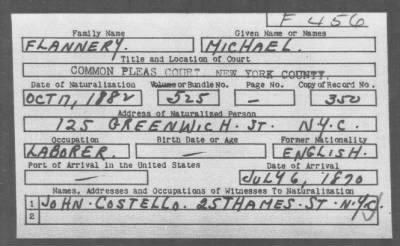 F 456
Family Name Given Name or Names
FLANNERY. MICHAEL.
Title and Location of Court
COMMON PLEAS COURT, NEW YORK COUNTY.
Date of Naturalization Volume or Bundle No. Page No. Copy of Record No.
OCT 17, 1882 525 - 350
Address of Naturalized Person
125 GREENWICH. ST. N.Y.C.
Occupation Birth Date or Age Former Nationality
LABORER. - ENGLISH.
Port of Arrival in the United States Date of Arrival
- JULY 6, 1870
Names, Addresses and Occupations of Witnesses To Naturalization
1 JOHN. COSTELLO. 25 THAMES. ST. N.Y.C.
2